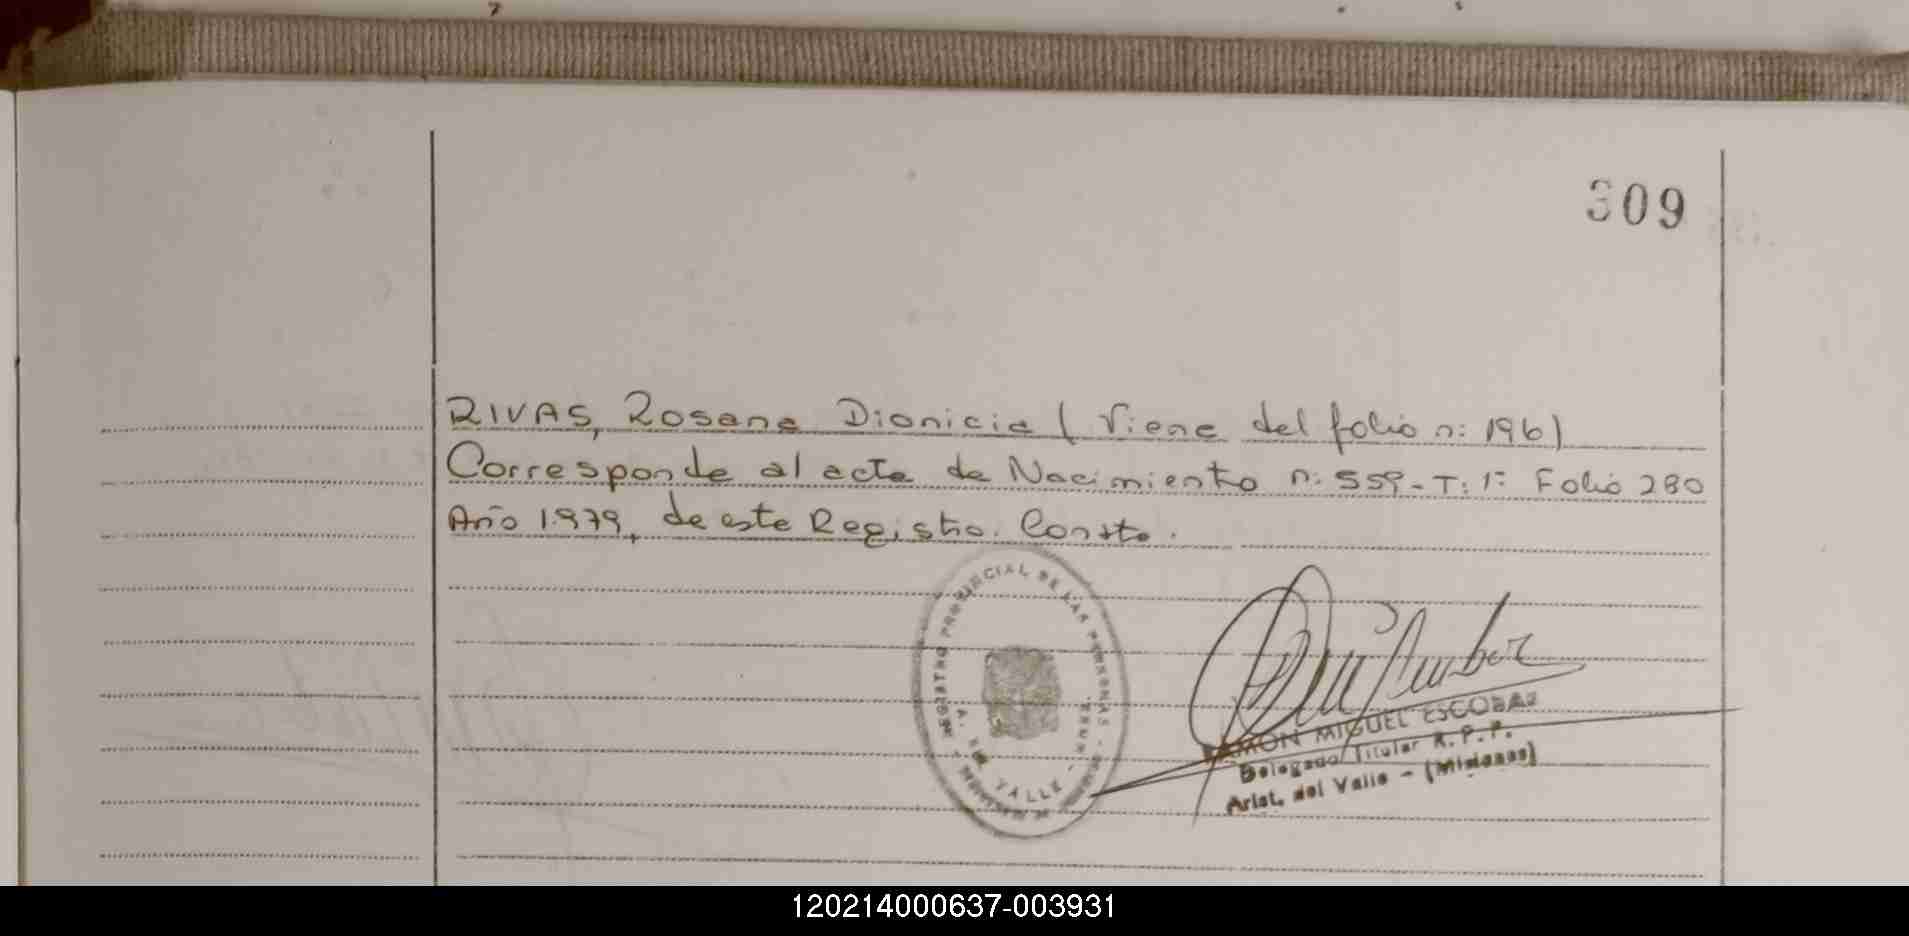 309
RIVAS, Rosana Dionicia (Viene del folio n: 196)
Corresponde al acta de Nacimiento n: 559 - T: 1º Folio 280
Año 1.979, de este Registro. Conste.
REGISTRO PROVINCIAL DE LAS PERSONAS
A. DEL VALLE
RAMON MIGUEL ESCOBAR
Delegado Titular R. P. P.
Arist. del Valle - (Misiones)
120214000637-003931